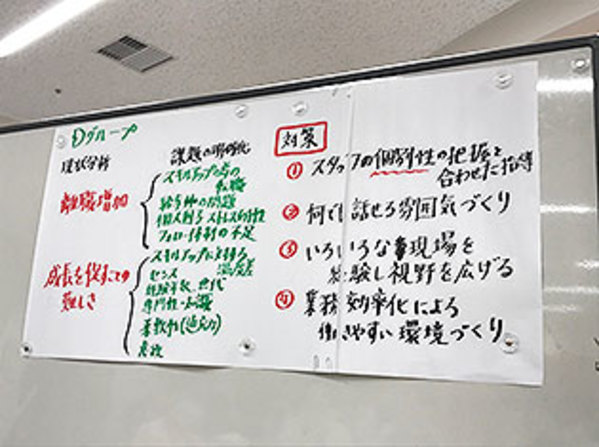 Dグループ
現状分析
課題の明確化
離職増加
スキルアップの為の
転職
給与他の問題
個人料うストレス耐性
フォロー体制の不足
成長を促すことの
難しさ
スキルアップに対する
温度差
センス
経験年数、世代
専門性・知識
柔軟性(適応力)
意欲
対策
① スタッフの個別性の把握と
合わせた指導
② 何でも話せる雰囲気づくり
③ いろいろな現場を
経験し視野を広げる
④ 業務効率化による
働きやすい環境づくり